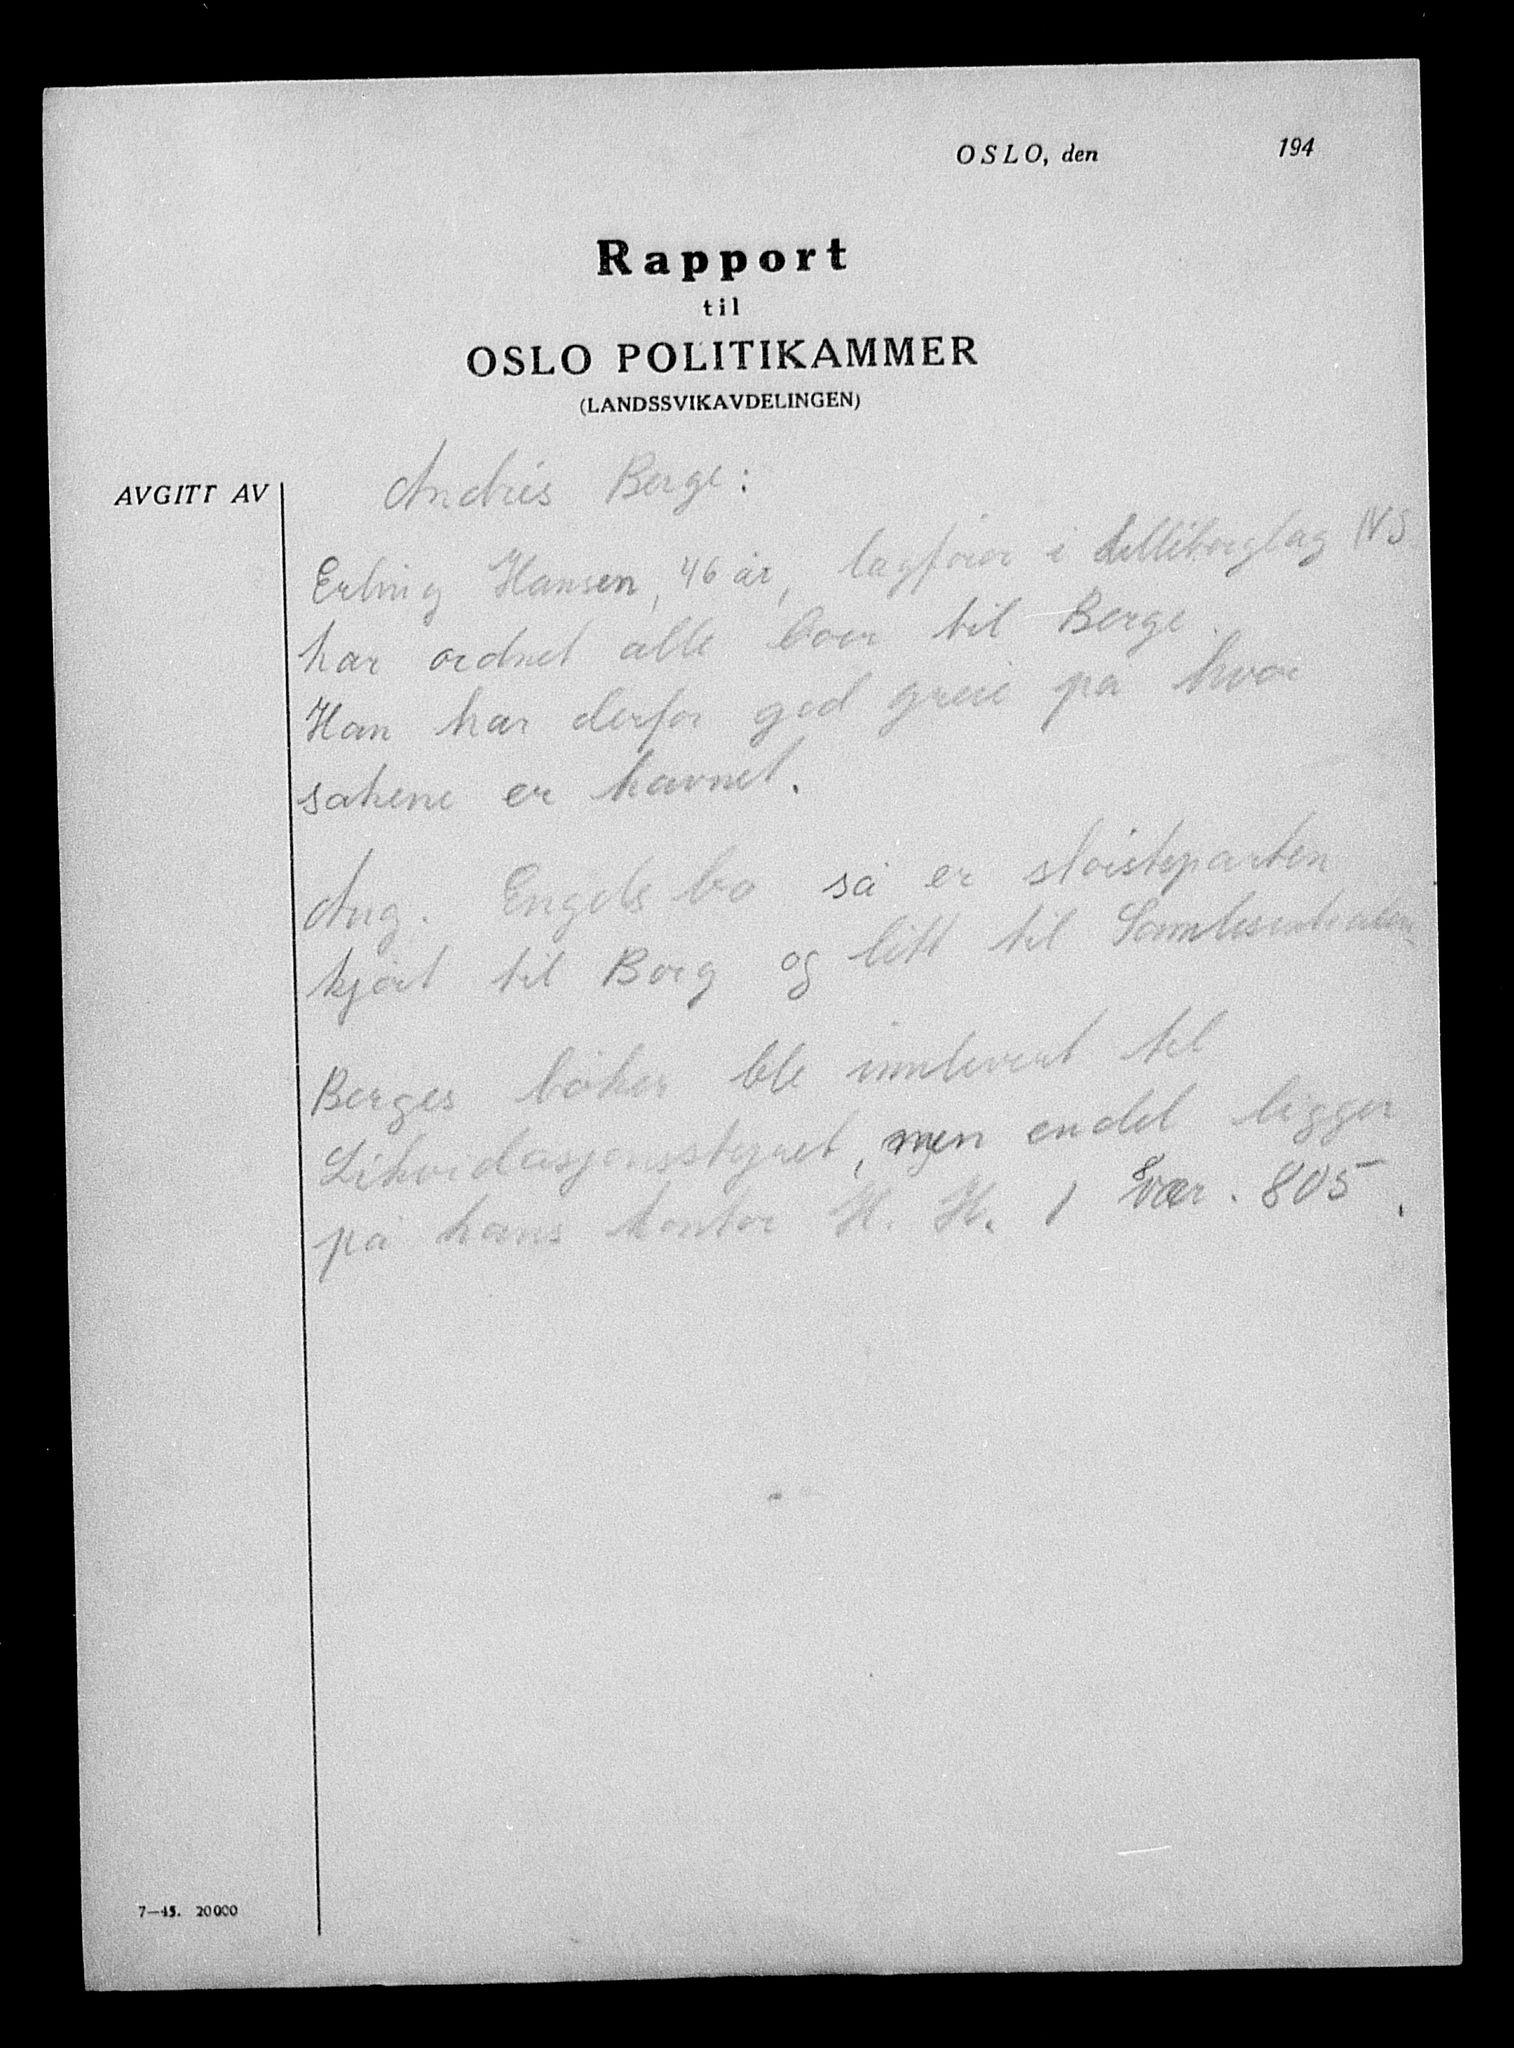 OSLO, den 194
Rapport
til
OSLO POLITIKAMMER
(LANDSSVIKAVDELINGEN)
AVGITT AV
Andrés Berge:
Erling Hansen, 46 år, lagfører i Lilleborglag NS
har ordnet alle boer til Berge.
Han har derfor god greie på hvor
sakene er havnet.
Ang. Engels bo så er størsteparten
kjørt til Borg og litt til Samlesentralen
Berges bøker ble innlevert til
Likvidasjonsstyret, men endel ligger
på hans kontor H. H. 1 vær. 805.
7—45. 20000